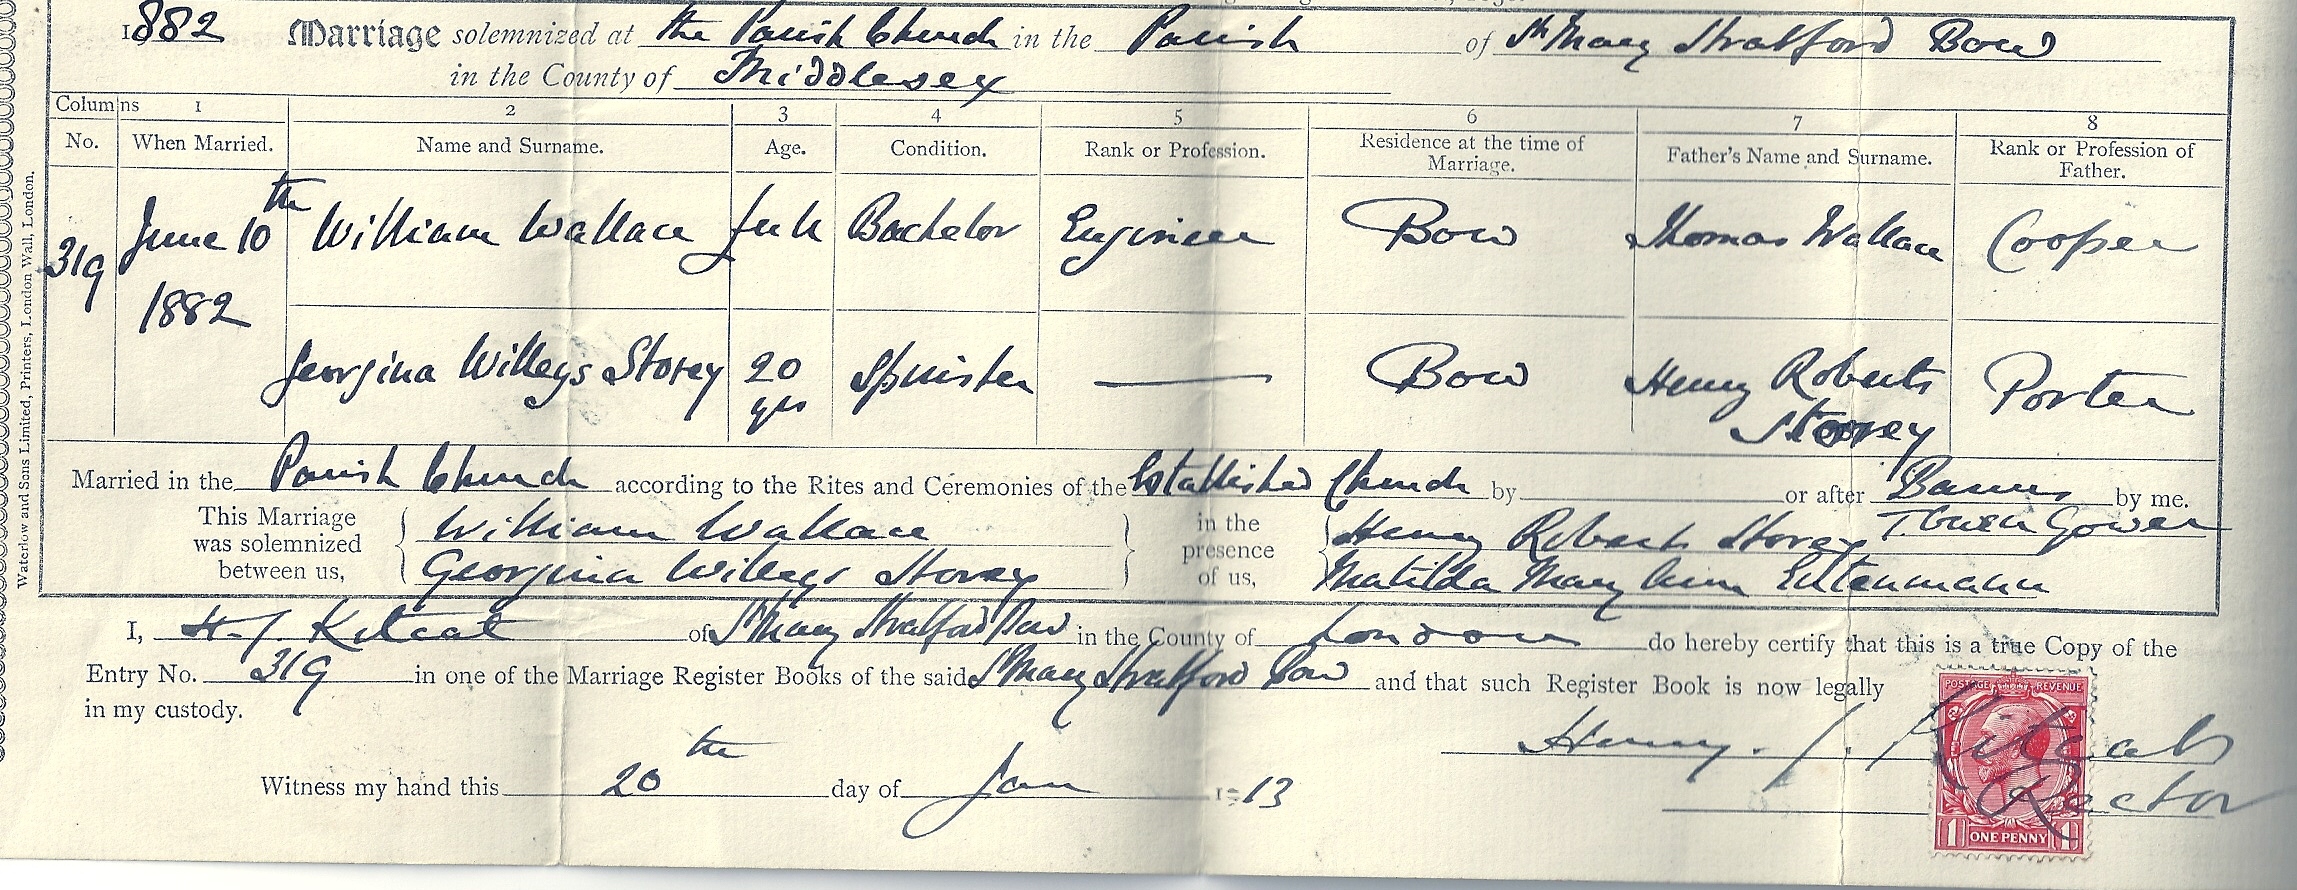 1882 Marriage solemnized at the Parish Church in the Parish of St Mary Stratford Bow
in the County of Middlesex
Columns 1 2 3 4 5 6 7 8
No. When Married. Name and Surname. Age. Condition. Rank or Profession. Residence at the time of Marriage. Father's Name and Surname. Rank or Profession of Father.
319 June 10th 1882 William Wallace full Bachelor Engineer Bow Thomas Wallace Cooper
Georgina Willeys Storey 20 yrs Spinster — Bow Henry Roberts Storey Porter
Married in the Parish Church according to the Rites and Ceremonies of the Established Church by or after Banns by me.
This Marriage was solemnized between us, William Wallace in the presence of us, Henry Roberts Storey Gower
Georgina Willeys Storey Matilda Mary Ann
I, H. J. Kitcat of St Mary Stratford Bow in the County of London do hereby certify that this is a true Copy of the
Entry No. 319 in one of the Marriage Register Books of the said St Mary Stratford Bow and that such Register Book is now legally
in my custody.
Henry. J. Kitcat
Rector
Witness my hand this 20th day of Jan 1913
POSTAGE REVENUE
1 ONE PENNY 1
Waterlow and Sons Limited, Printers, London Wall, London.